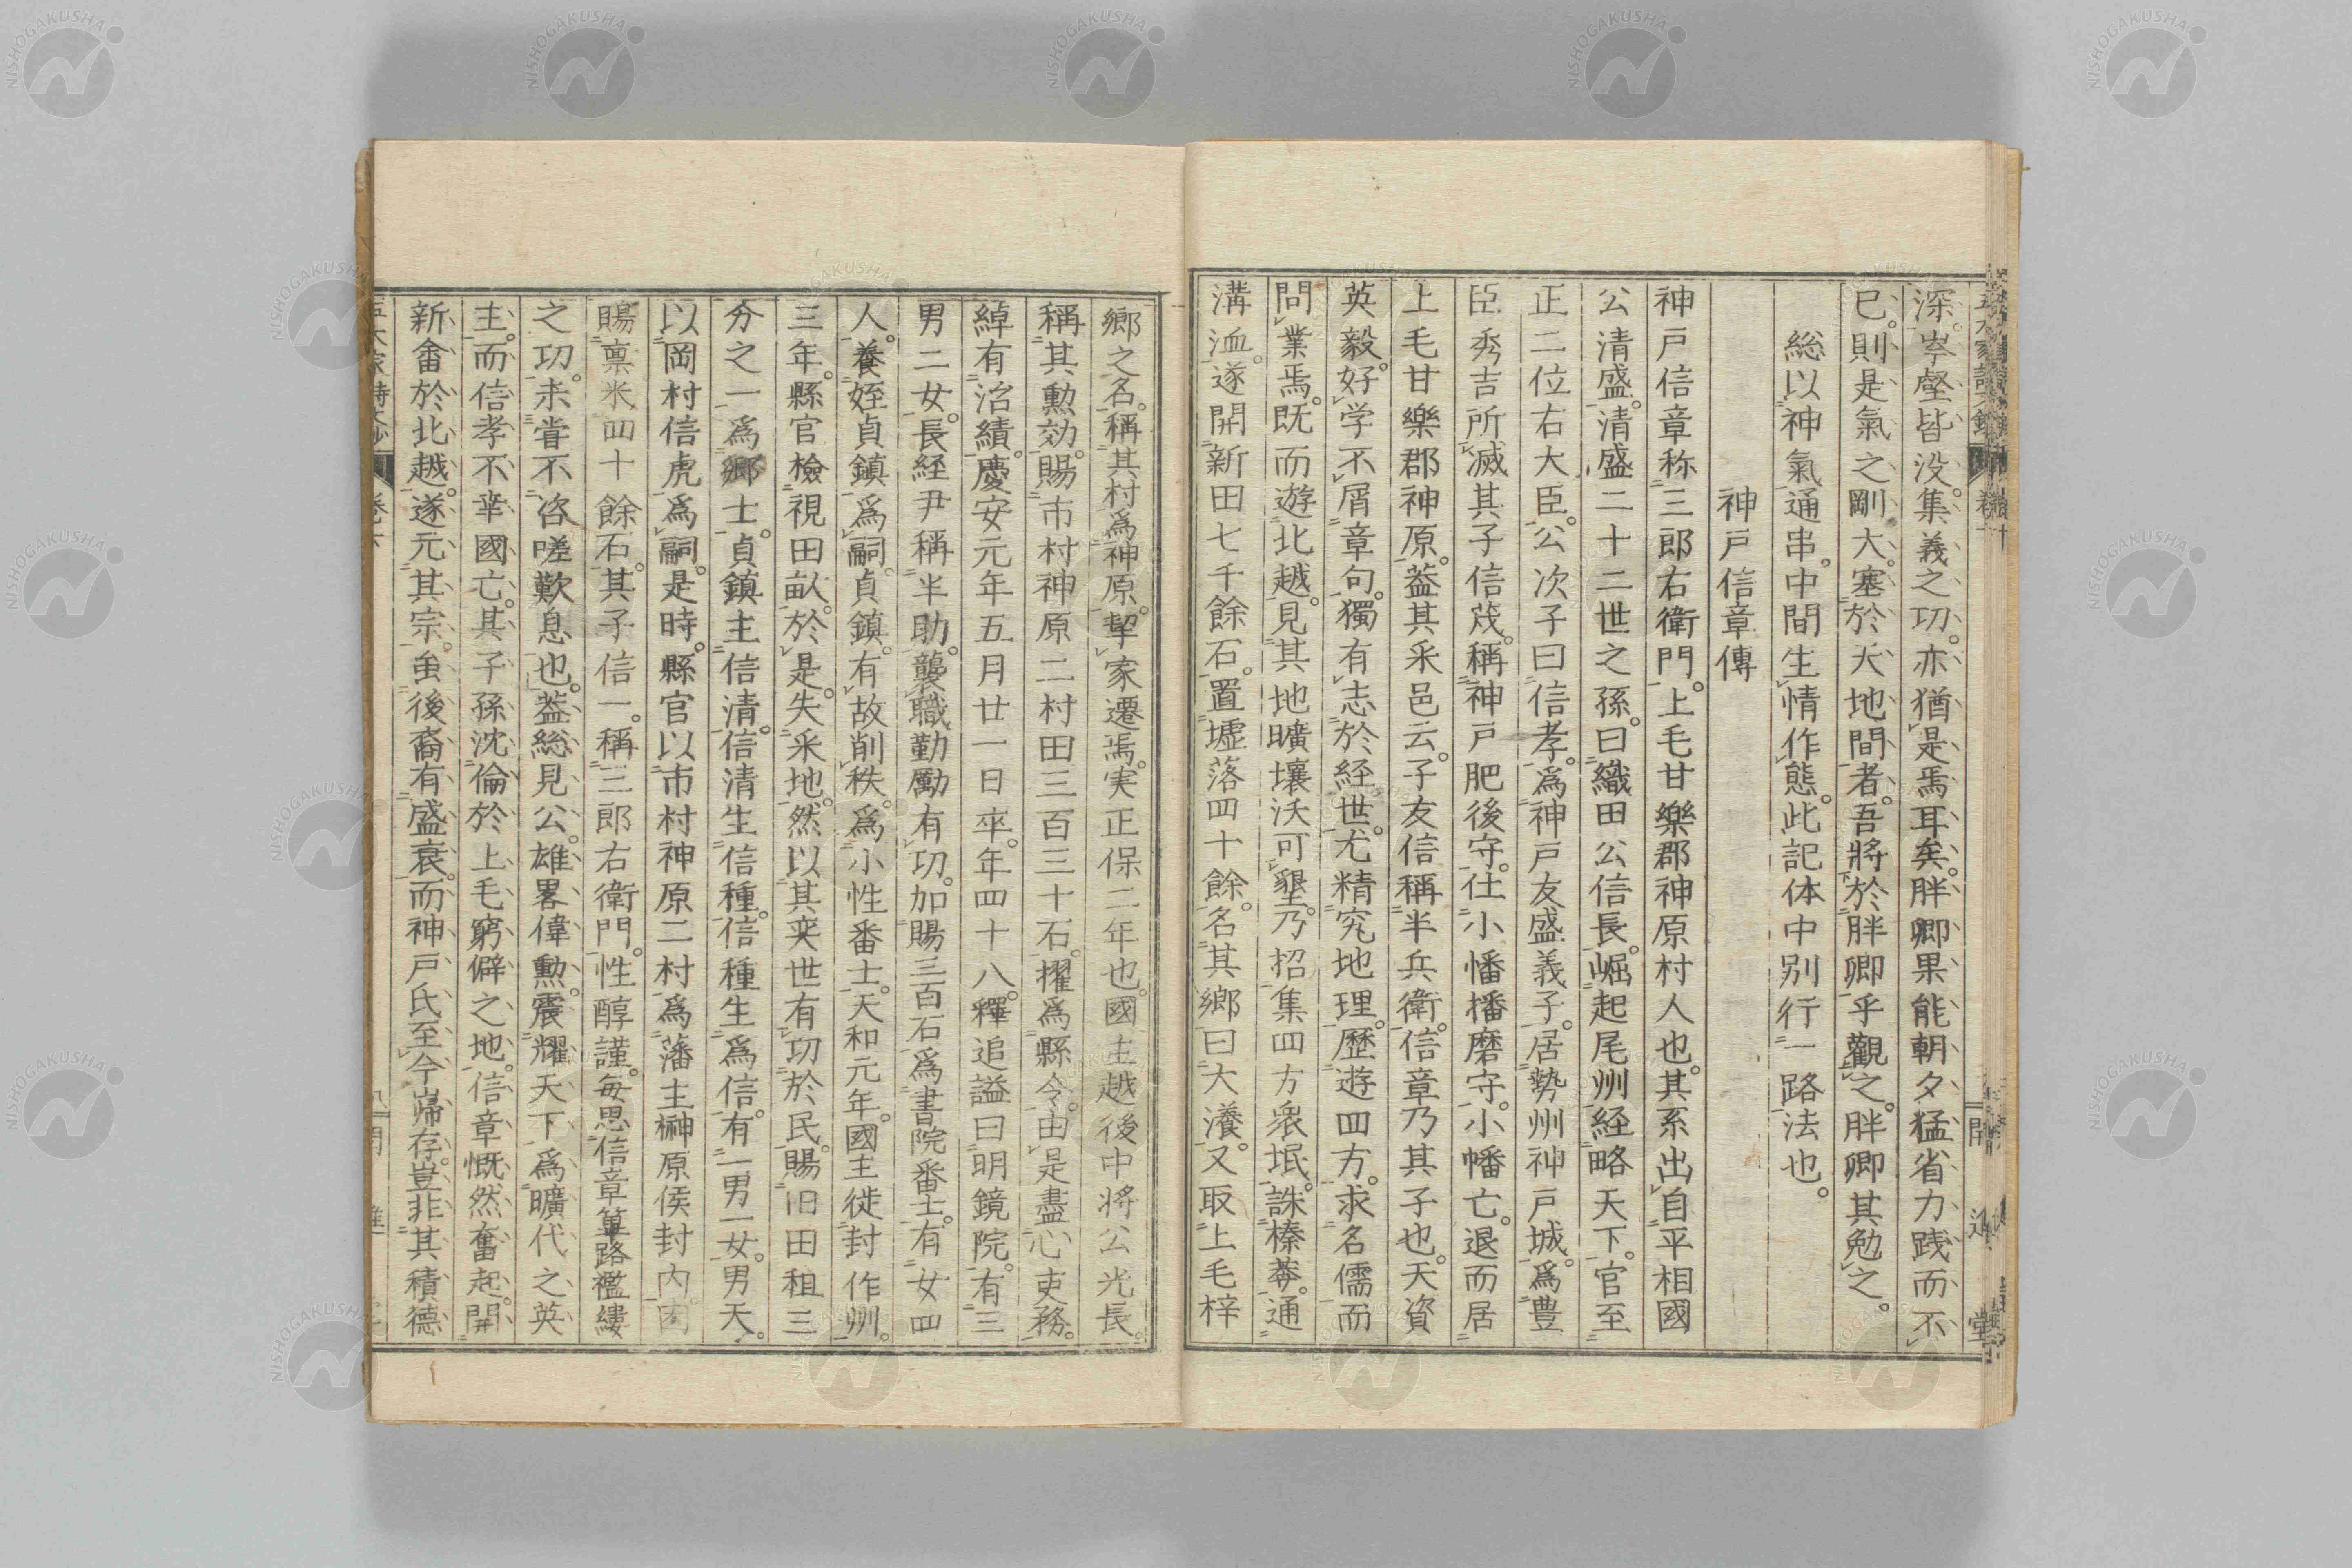 深岑壑皆没集義之功亦猶是焉耳矣胖卿果能朝夕猛省力践而不
已則是氣之剛大塞於天地間者吾將於胖卿乎觀之胖卿其勉之
総以神氣通串中間生情作態此記体中別行一路法也
神戸信章傳
神戸信章称三郎右衛門上毛甘樂郡神原村人也其系出自平相國
公清盛清盛二十二世之孫曰織田公信長崛起尾州経略天下官至
正二位右大臣公次子曰信孝為神戸友盛義子居勢州神戸城為豊
臣秀吉所滅其子信茂稱神戸肥後守仕小幡播磨守小幡亡退而居
上毛甘樂郡神原葢其采邑云子友信稱半兵衛信章乃其子也天資
英毅好学不屑章句獨有志於経世尤精究地理歴遊四方求名儒而
問業焉既而遊北越見其地曠壤沃可墾乃招集四方衆垊誅榛莽通
溝洫遂開新田七千餘石置墟落四十餘名其鄉曰大瀁又取上毛梓
鄉之名稱其村為神原挈家遷焉実正保二年也國主越後中将公光長
稱其勲効賜市村神原二村田三百三十石擢為縣令由是盡心吏務
綽有治績慶安元年五月廿一日卒年四十八釋追謚曰明鏡院有三
男二女長経尹稱半助襲職勤勵有功加賜三百石為書院番士有女四
人養姪貞鎮為嗣貞鎮有故削秩為小性番士天和元年國主徙封作州
三年縣官檢視田畝於是失采地然以其奕世有功於民賜旧田租三
分之一為鄉士貞鎮主信清信清生信種信種生為信有一男一女男夭
以岡村信虎為嗣是時縣官以市村神原二村為藩主榊原侯封内因
賜禀米四十餘石其子信一稱三郎右衛門性醇謹毎思信章篳路襤縷
之功未甞不咨嗟歎息也葢総見公雄畧偉勲震耀天下為曠代之英
主而信孝不幸國亡其子孫沈倫於上毛窮僻之地信章慨然奮起開
新畬於北越遂元其宗虽後裔有盛衰而神戸氏至今歸存豈非其積德